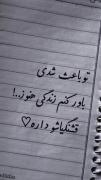 تو باعث شدی
باور کنم زندگی هنوز..!
قشنگیاشو داره♡